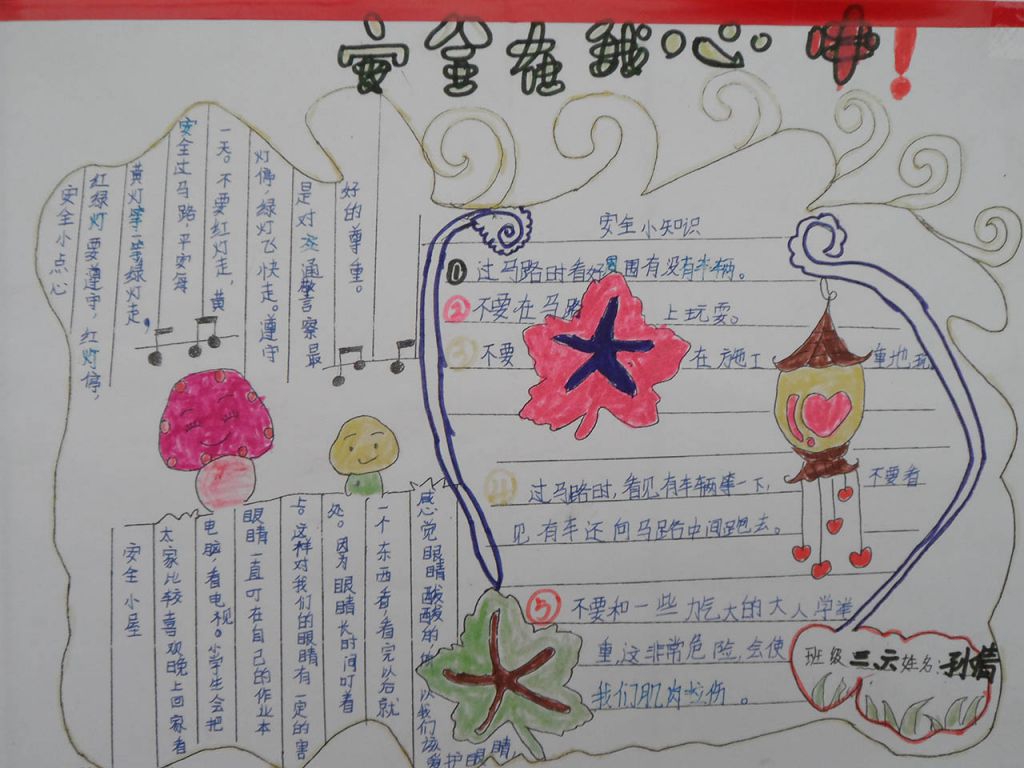 安全在我心中！
安全小点心
红绿灯要遵守，红灯停，
黄灯等一等绿灯走，
安全过马路，平安每
一天。不要红灯走，黄
灯停，绿灯飞快走。遵守
是对交通警察最
好的尊重。
安全小知识
①过马路时看好周围有没有车辆。
②不要在马路上玩耍。
③不要在施工重地玩
④过马路时，看见有车辆等一下，不要看
见有车还向马路中间跑去。
⑤不要和一些力气大的大人学举
重，这非常危险，会使
我们肌肉拉伤。
安全小屋
大家比较喜欢晚上回家看
电脑看电视。小学生会把
眼睛一直叮在自己的作业本
上。这样对我们的眼睛有一定的害
处。因为眼睛长时间叮着
一个东西看看完以后就
感觉眼睛酸酸的 以我们该
爱护眼睛，
班级三、六姓名：孙倩